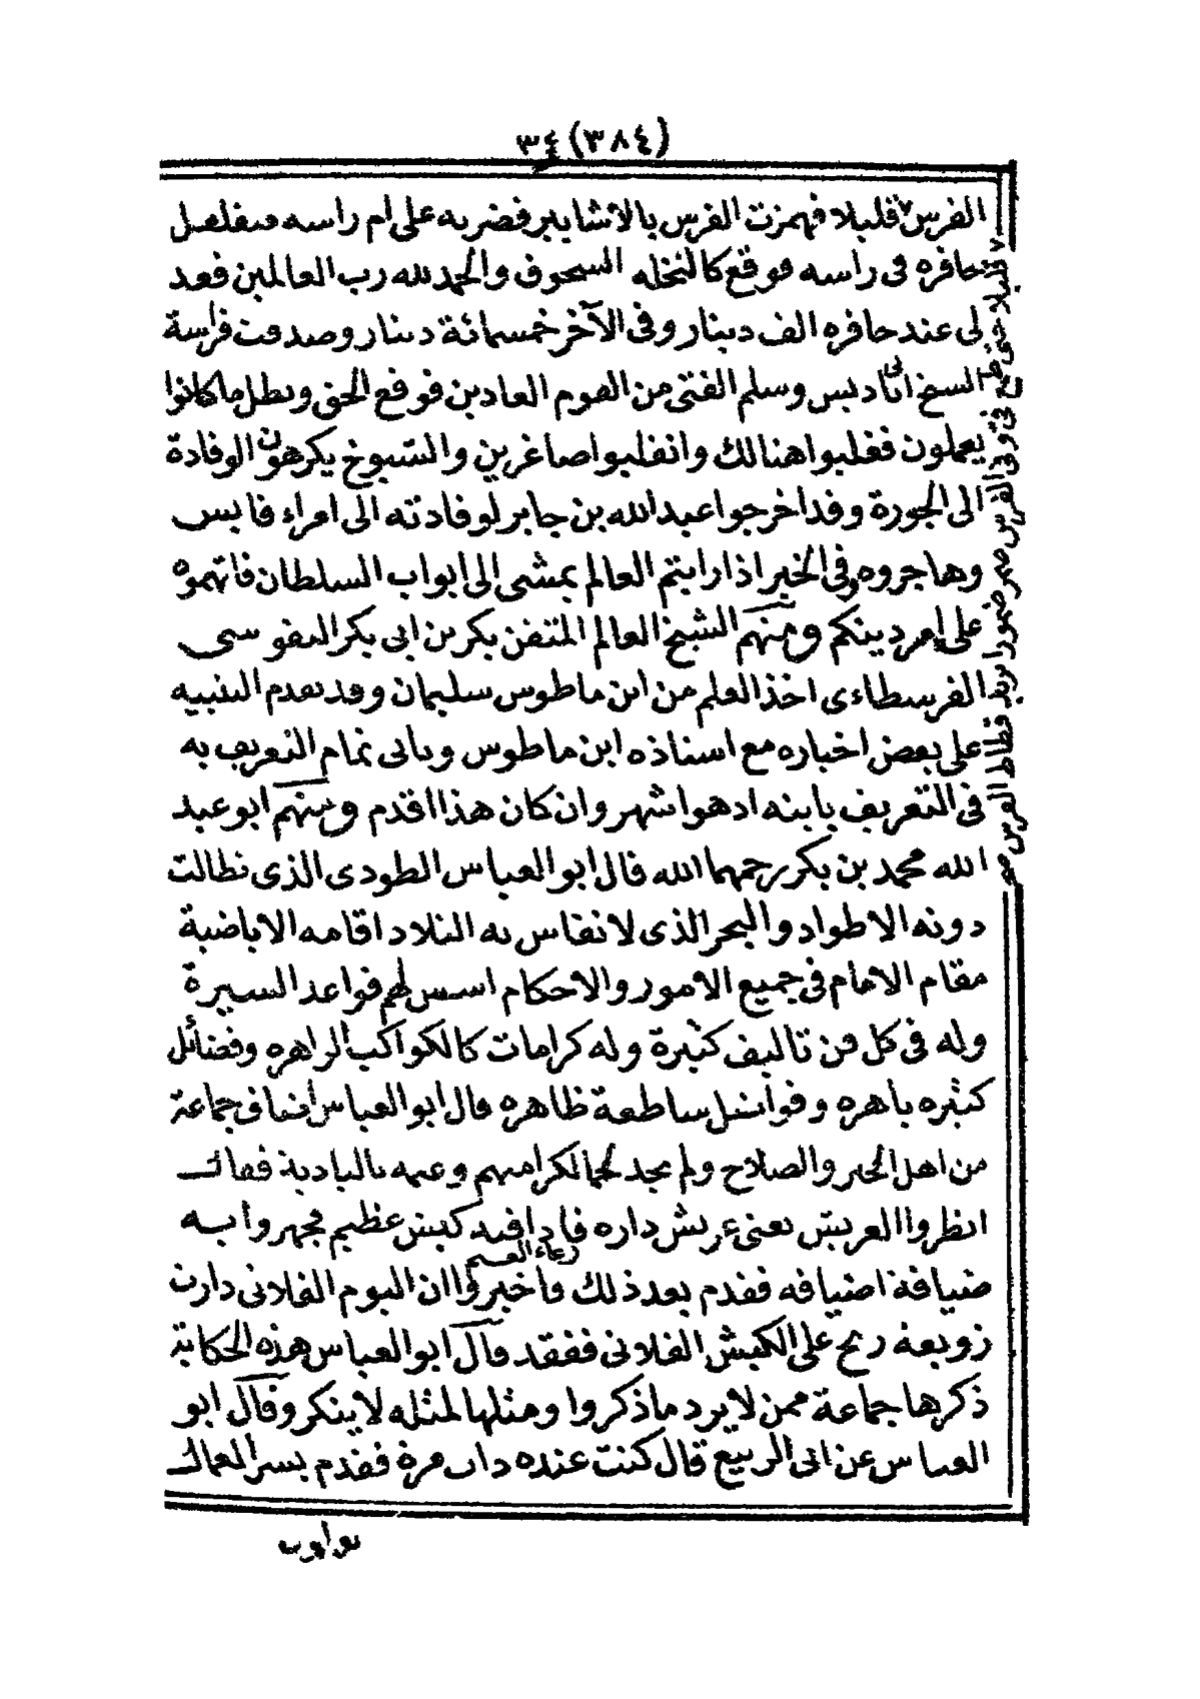 (٣٨٤) ٣٤
الفرس ٧ قليلا فهمزت الفرس بالاشابير فضربه على ام راسه فتفلصل
حافره فى راسه فوقع كالنخله السحوق والحمد لله رب العالمين فعد
لى عند حافره الف دينار وفى الآخر خمسمائة دينار وصدقت فراسة
الشيخ اتاديس وسلم الفتى من القوم العادين فوقع الحق وبطل ما كانوا
يعملون فغلبوا هنالك وانقلبوا صاغرين والشيوخ يكرهون الوفادة
الى الجورة وقد اخرجوا عبد الله بن جابر لوفادته الى امراء قابس
وهاجروه وفى الخبر اذا رايتم العالم يمشى الى ابواب السلطان فاتهموه
على امر دينكم ومنهم الشيخ العالم المتفنن بكر بن ابى بكر النفوسى
الفرسطاءى اخذ العلم من ابن ماطوس سليمان وقد تقدم التنبيه
على بعض اخباره مع استاذه ابن ماطوس وياتى تمام التعريف به
فى التعريف بابنه اذ هو اشهر وان كان هذا اقدم ومنهم ابو عبد
الله محمد بن بكر رحمهما الله قال ابو العباس الطودى الذى تطالت
دونه الاطواد والبحر الذى لا تقاس به الثلاد اقامه الاباضية
مقام الامام فى جميع الامور والاحكام اسس لهم قواعد السيرة
وله فى كل فن تاليف كثيرة وله كرامات كالكواكب الزاهره وفضائل
كثيره باهره وفواضل ساطعة ظاهره قال ابو العباس اضاف جماعة
من اهل الخير والصلاح ولم يجد لحما لكرامتهم وغنمه بالبادية فقال
انظروا العريش يعنى عريش داره فاذا فيه كبش عظيم فجهروا به
ضيافة اضيافه فقدم بعد ذلك رعاء الغنم واخبروا ان اليوم الفلانى دارت
زوبعة ريح على الكبش الفلانى ففقد قال ابو العباس هذه الحكاية
ذكرها جماعة ممن لا يرد ما ذكروا ومثلها لمثله لا ينكر وقال ابو
العباس عن ابى الربيع قال كنت عنده ذات مرة فقدم بسر العمال
٧ قليلا حتى
الفرس ضمر ضمورا يريد
الفرس صح